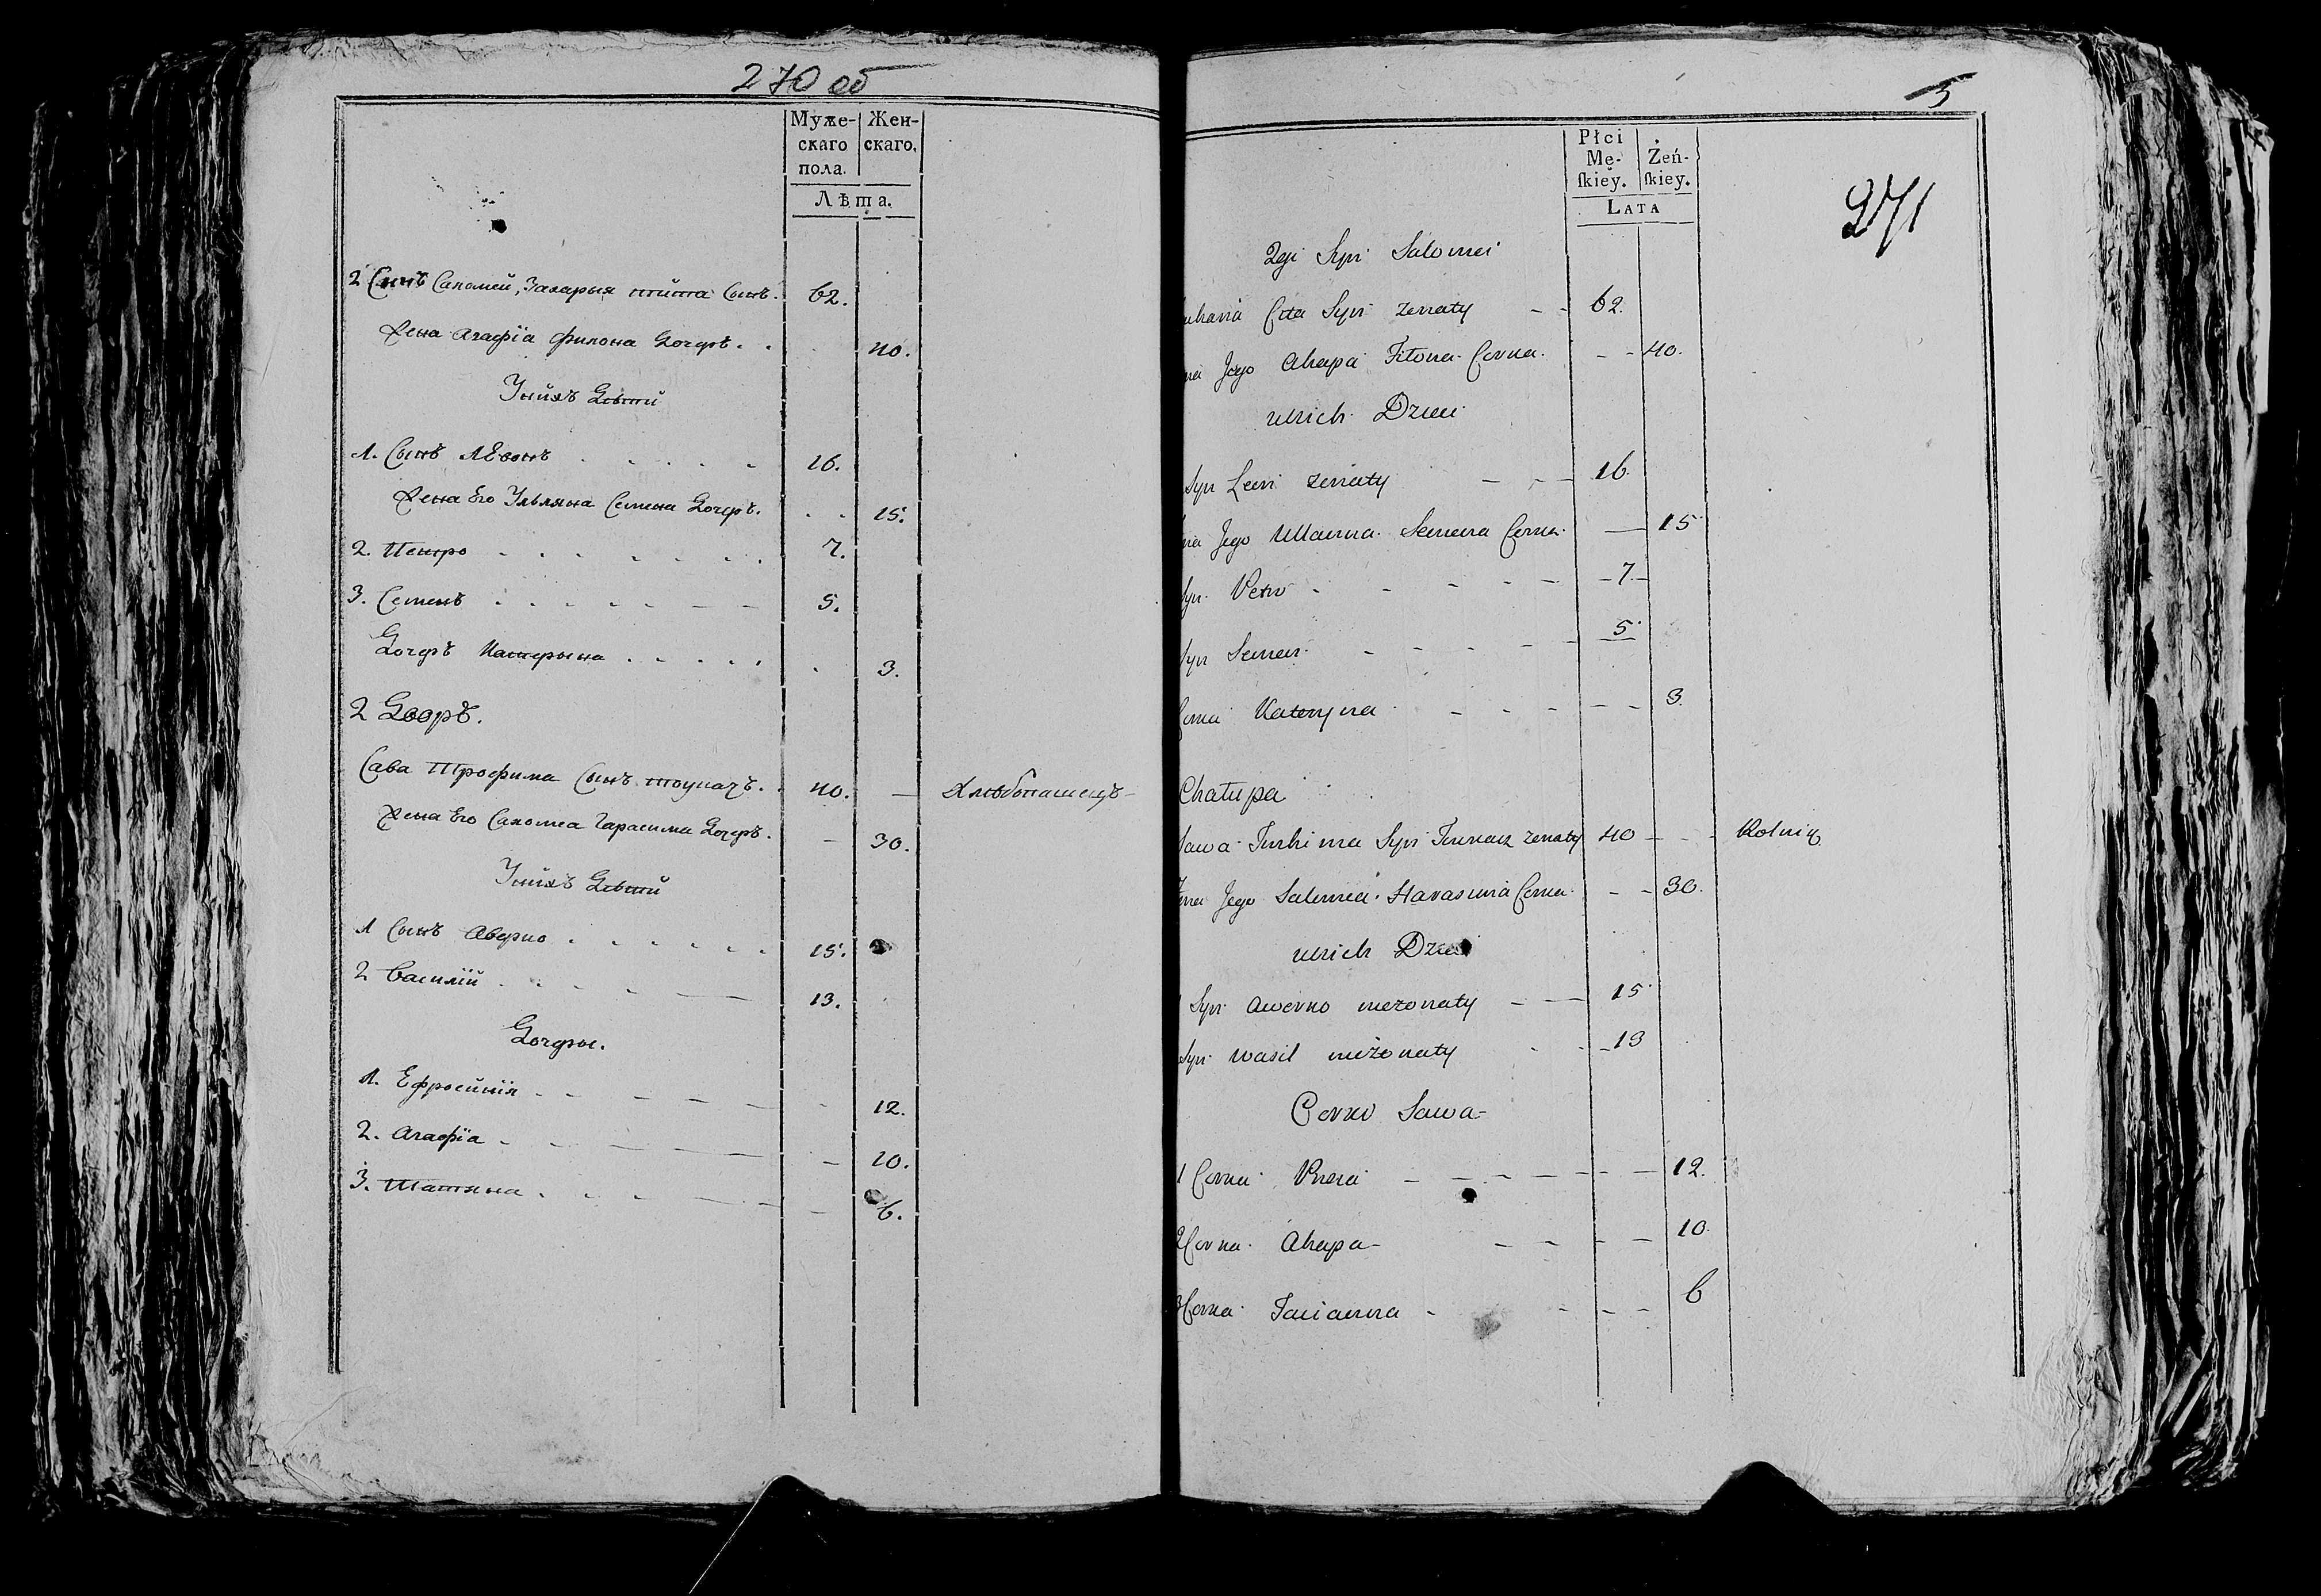 270 об
Муже-
скаго
пола.
Жен-
скаго.
Лѣта.
2 Сынъ Саломей, Захарыя Сынъ. 62.
Жена Агафїа Филона Дочеръ. 40.
Унйхъ Дѣтй
1. Сынъ Левонъ 16.
Жена Его Ульляна Семена Дочеръ. 15.
2. Петро 7.
3. Семенъ 5.
Дочеръ Катерына 3.
2 Дворъ.
Сава Трофима Сынъ 40. — Хлѣбопашецъ —
Жена Его Саломеа Гарасима Дочеръ. 30.
Унйхъ Дѣтй
1 Сынъ Аверко 15.
2 Василїй 13.
Дочеры.
1. Ефросйнїя 12.
2. Агафїа 10.
3. Татяна 6.
5
271
Płci
Mę-
ſkiey.
Żeń-
ſkiey.
LATA
2gi Syn Salomei
Syn zenaty 62.
Jego Ahapa Filona Corka. 40.
u nich Dzieci
Syn Leon zenaty 16.
Jego Ullanna Semena Corka 15
Syn Petro 7
Syn Semen 5
Corka Kateryna 3.
Chałupa
Sawa Syn zenaty 40 Rolnik
Zona Jego Salomea Harasima Corka 30.
u nich Dzieci
1 Syn Awerko niezonaty 15
Syn Wasil niezonaty 13
Corki Sawa
1 Corka 12.
2 Corka Ahapa 10
3 Corka Tacianna 6